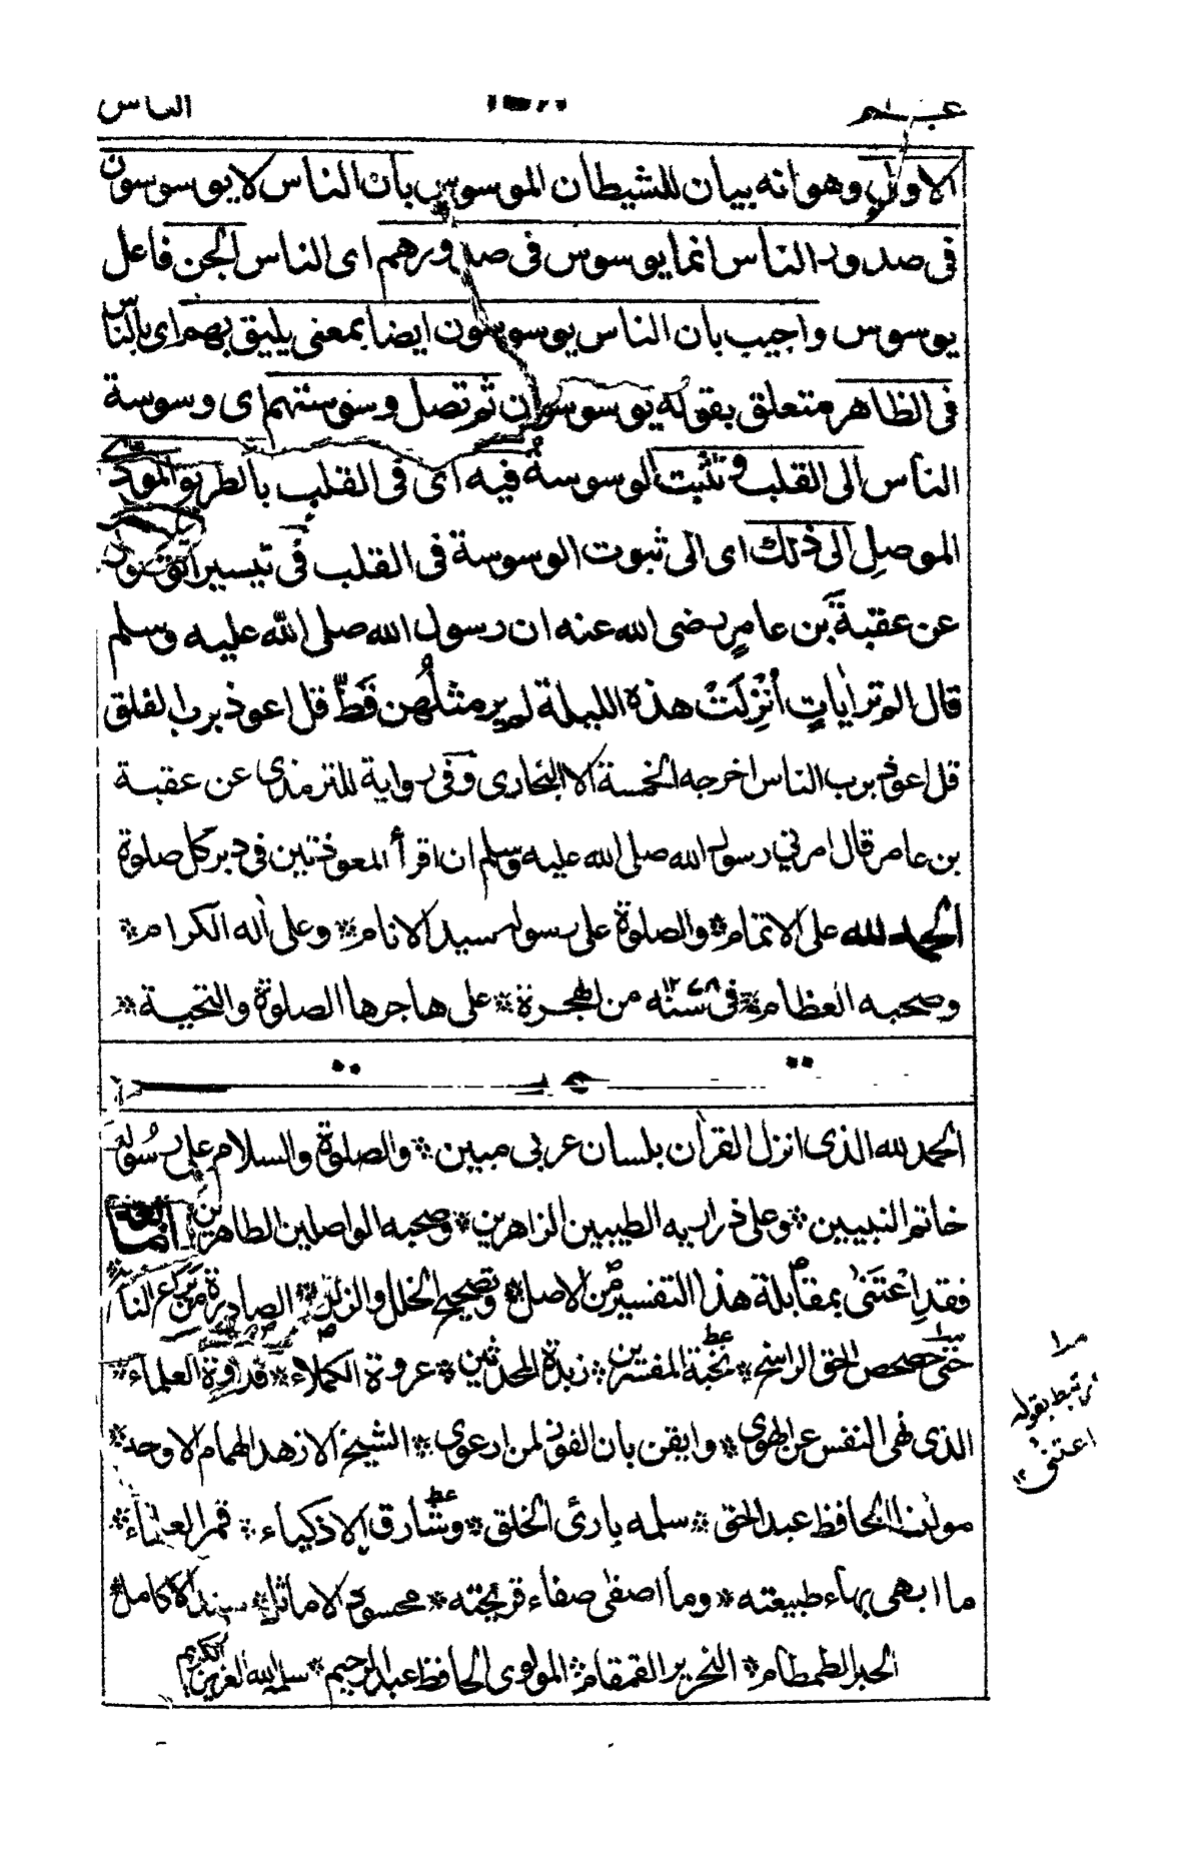 الناس
عم
الاول وهو انه بيان للشيطان الموسوس بان الناس لا يوسوسون
فى صدور الناس انما يوسوس فى صدورهم اى الناس الجن فاعل
يوسوس واجيب بان الناس يوسوسون ايضا بمعنى يليق بهم اى بالناس
فى الظاهر متعلق بقوله يوسوسون ثم تصل وسوستهم اى وسوسة
الناس الى القلب وتثبت الوسوسة فيه اى فى القلب بالطريق المودى
الموصل الى ذلك اى الى ثبوت الوسوسة فى القلب فى تيسير
عن عقبة بن عامر رضى الله عنه ان رسول الله صلى الله عليه وسلم
قال الم تر اٰيات أُنْزِلَتْ هذه الليلة لم ير مثلُهن قَطُّ قل اعوذ برب الفلق
قل اعوذ برب الناس اخرجه الخمسة الا البخارى وفى رواية للترمذى عن عقبة
بن عامر قال امرني رسول الله صلى الله عليه وسلم ان اقرأ المعوذتين فى دبر كل صلوة
الحمد لله على الاتمام * والصلوة على رسوله سيد الانام * وعلى اٰله الكرام *
وصحبه العظام * فى سنه ١٢٧٨ من الهجرة * على هاجرها الصلوة والتحية *
الحمد لله الذى انزل القرأن بلسان عربى مبين * والصلوة والسلام على رسوله
خاتم النبيين * وعلى ذراريه الطيبين الزاهرين * وصحبه الواصلين الطاهرين
فقد اعْتَنىٰ بمقابلة هذا التفسير من الاصل * وتصحيح الخلل والزلل * الصادرة من
حتى حصحص الحق الراسخ * نخبة المفسرين * زبدة المحدثين * عروة الكملاء * قدوة العلماء *
الذى نهى النفس عن الهوى * وايقن بان الفوز لمن ارعوى * الشيخ الازهد الهمام الاوحد *
مولٰنا الحافظ عبد الحق * سلمه بارئ الخلق * وشارق الاذكياء * قمر العلماء *
ما ابهى بهاء طبيعته * وما اصفى صفاء قريحته * محسود الاماثل * سند الاكامل *
الحبر الطمطام * النحرير القمقام * المولوى الحافظ عبد الرحيم * سلمه الله العزيز الكريم
مرتبط بقوله
اعتنىٰ ١٢